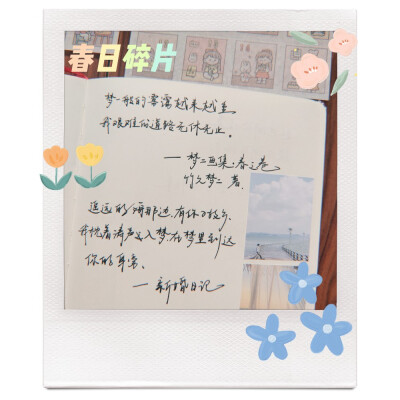 春日碎片
梦一般的雾霭越来越重，
我艰难的道路无休无止。
——梦二画集·春之卷
竹久梦二 著
遥远的海那边，有你的故乡，
我枕着涛声入梦，在梦里到达
你的耳旁。
——新婚日记